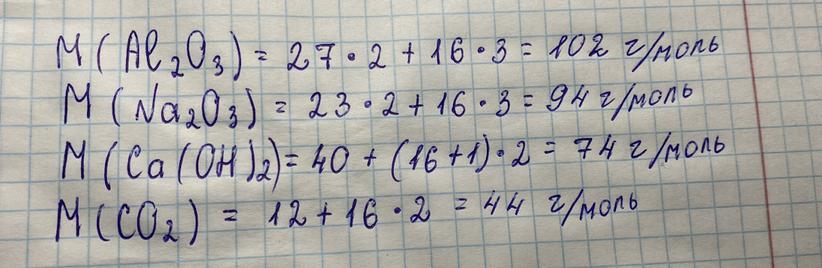 M(Al₂O₃) = 27·2 + 16·3 = 102 г/моль
M(Na₂O₃) = 23·2 + 16·3 = 94 г/моль
M(Ca(OH)₂) = 40 + (16+1)·2 = 74 г/моль
M(CO₂) = 12 + 16·2 = 44 г/моль